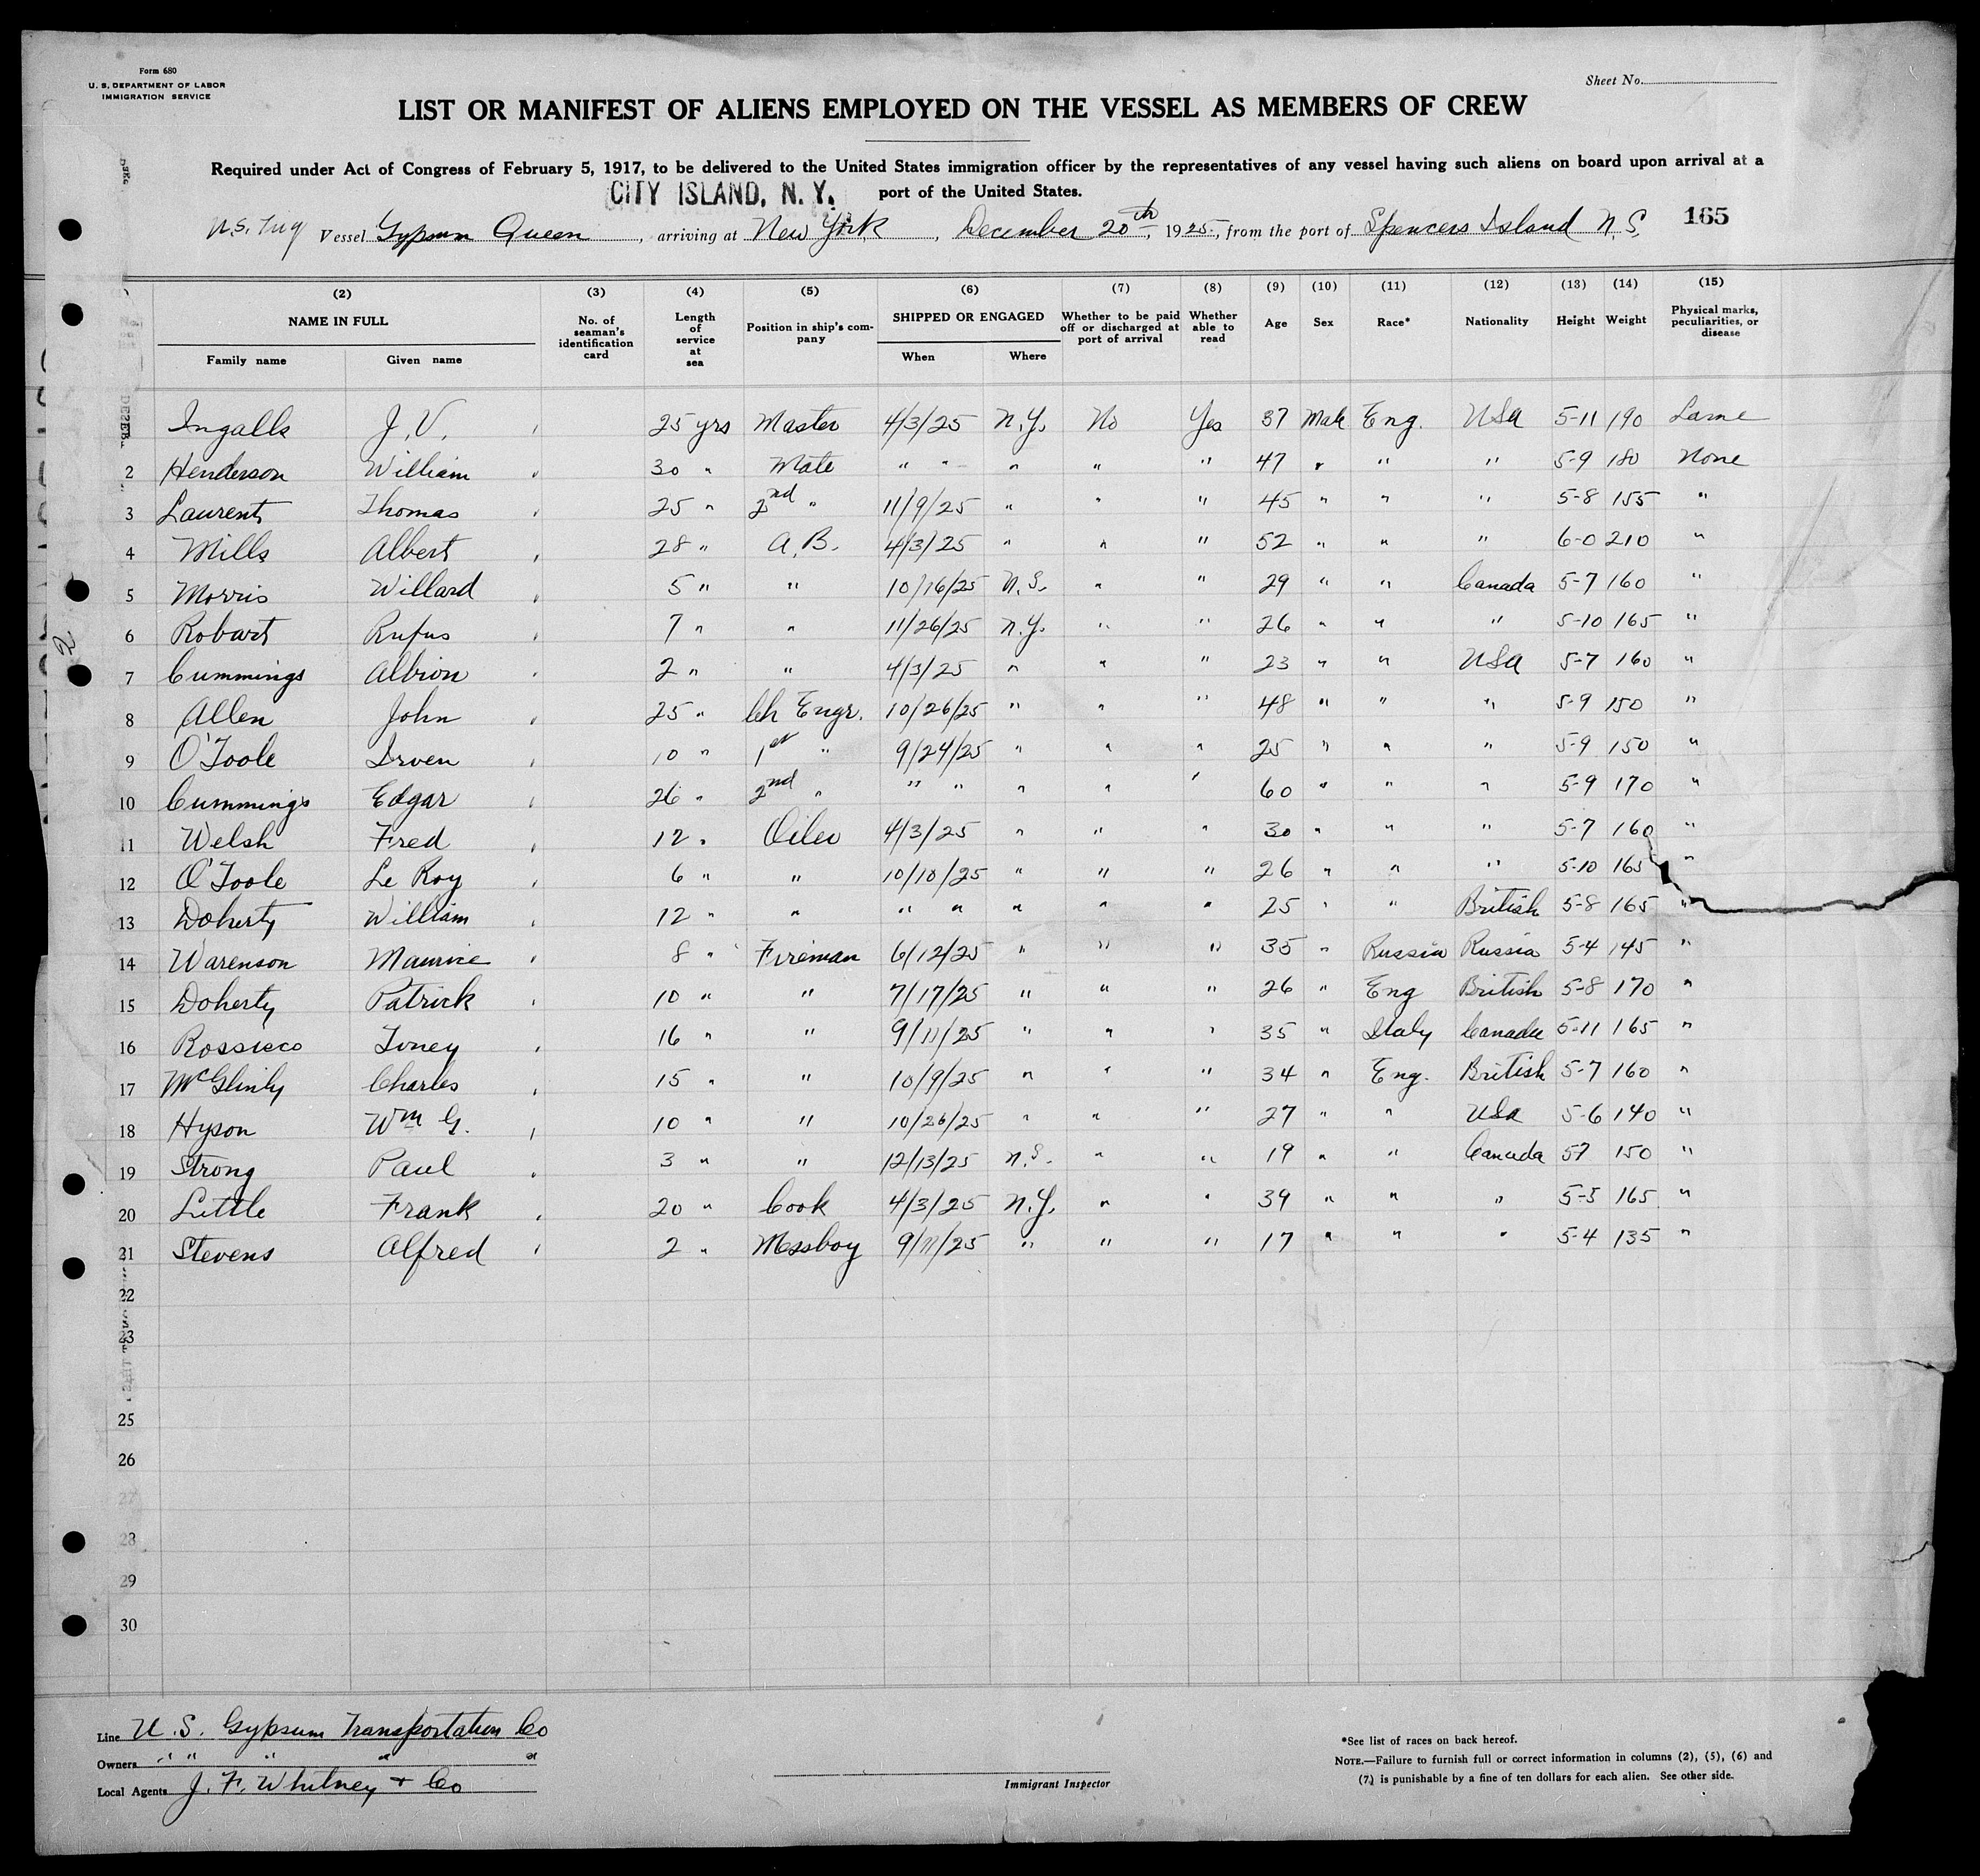 Form 680
U. S. DEPARTMENT OF LABOR
IMMIGRATION SERVICE
Sheet No.
LIST OR MANIFEST OF ALIENS EMPLOYED ON THE VESSEL AS MEMBERS OF CREW
Required under Act of Congress of February 5, 1917, to be delivered to the United States immigration officer by the representatives of any vessel having such aliens on board upon arrival at a
CITY ISLAND, N. Y. port of the United States.
U.S. Tug Vessel Gypsum Queen, arriving at New York, December 20th, 1925, from the port of Spencers Island N.S. 165
(2) (3) (4) (5) (6) (7) (8) (9) (10) (11) (12) (13) (14) (15)
NAME IN FULL No. of seaman's identification card Length of service at sea Position in ship's company SHIPPED OR ENGAGED Whether to be paid off or discharged at port of arrival Whether able to read Age Sex Race* Nationality Height Weight Physical marks, peculiarities, or disease
Family name Given name When Where
Ingalls J. V. 25 yrs Master 4/3/25 N.Y. No Yes 37 Male Eng. USA 5-11 190 Lame
2 Henderson William 30 " Mate " " " " " 47 " " " 5-9 180 None
3 Laurent Thomas 25 " 2nd " 11/9/25 " " " 45 " " " 5-8 155 "
4 Mills Albert 28 " A.B. 4/3/25 " " " 52 " " " 6-0 210 "
5 Morris Willard 5 " " 10/16/25 N.S. " " 29 " " Canada 5-7 160 "
6 Robart Rufus 7 " " 11/26/25 N.Y. " " 26 " " " 5-10 165 "
7 Cummings Albion 2 " " 4/3/25 " " " 23 " " USA 5-7 160 "
8 Allen John 25 " Ch Engr. 10/26/25 " " " 48 " " " 5-9 150 "
9 O'Toole Irven 10 " 1st " 9/24/25 " " " 25 " " " 5-9 150 "
10 Cummings Edgar 26 " 2nd " " " " " " 60 " " " 5-9 170 "
11 Welsh Fred 12 " Oiler 4/3/25 " " " 30 " " " 5-7 160 "
12 O'Toole Le Roy 6 " " 10/10/25 " " " 26 " " " 5-10 165 "
13 Doherty William 12 " " " " " " " 25 " " British 5-8 165 "
14 Warenson Maurice 8 " Fireman 6/12/25 " " " 35 " Russia Russia 5-4 145 "
15 Doherty Patrick 10 " " 7/17/25 " " " 26 " Eng British 5-8 170 "
16 Toney 16 " " 9/11/25 " " " 35 " Italy Canada 5-11 165 "
17 Charles 15 " " 10/9/25 " " " 34 " Eng. British 5-7 160 "
18 Hyson Wm G. 10 " " 10/26/25 " " " 27 " " USA 5-6 140 "
19 Strong Paul 3 " " 12/13/25 N.S. " " 19 " " Canada 57 150 "
20 Little Frank 20 " Cook 4/3/25 N.Y. " " 39 " " " 5-5 165 "
21 Stevens Alfred 2 " Messboy 9/11/25 " " " 17 " " " 5-4 135 "
22
23
25
26
27
28
29
30
Line U. S. Gypsum Transportation Co
Owners " " " " "
Local Agents J. F. Whitney + Co
Immigrant Inspector
*See list of races on back hereof.
NOTE.—Failure to furnish full or correct information in columns (2), (5), (6) and
(7) is punishable by a fine of ten dollars for each alien. See other side.